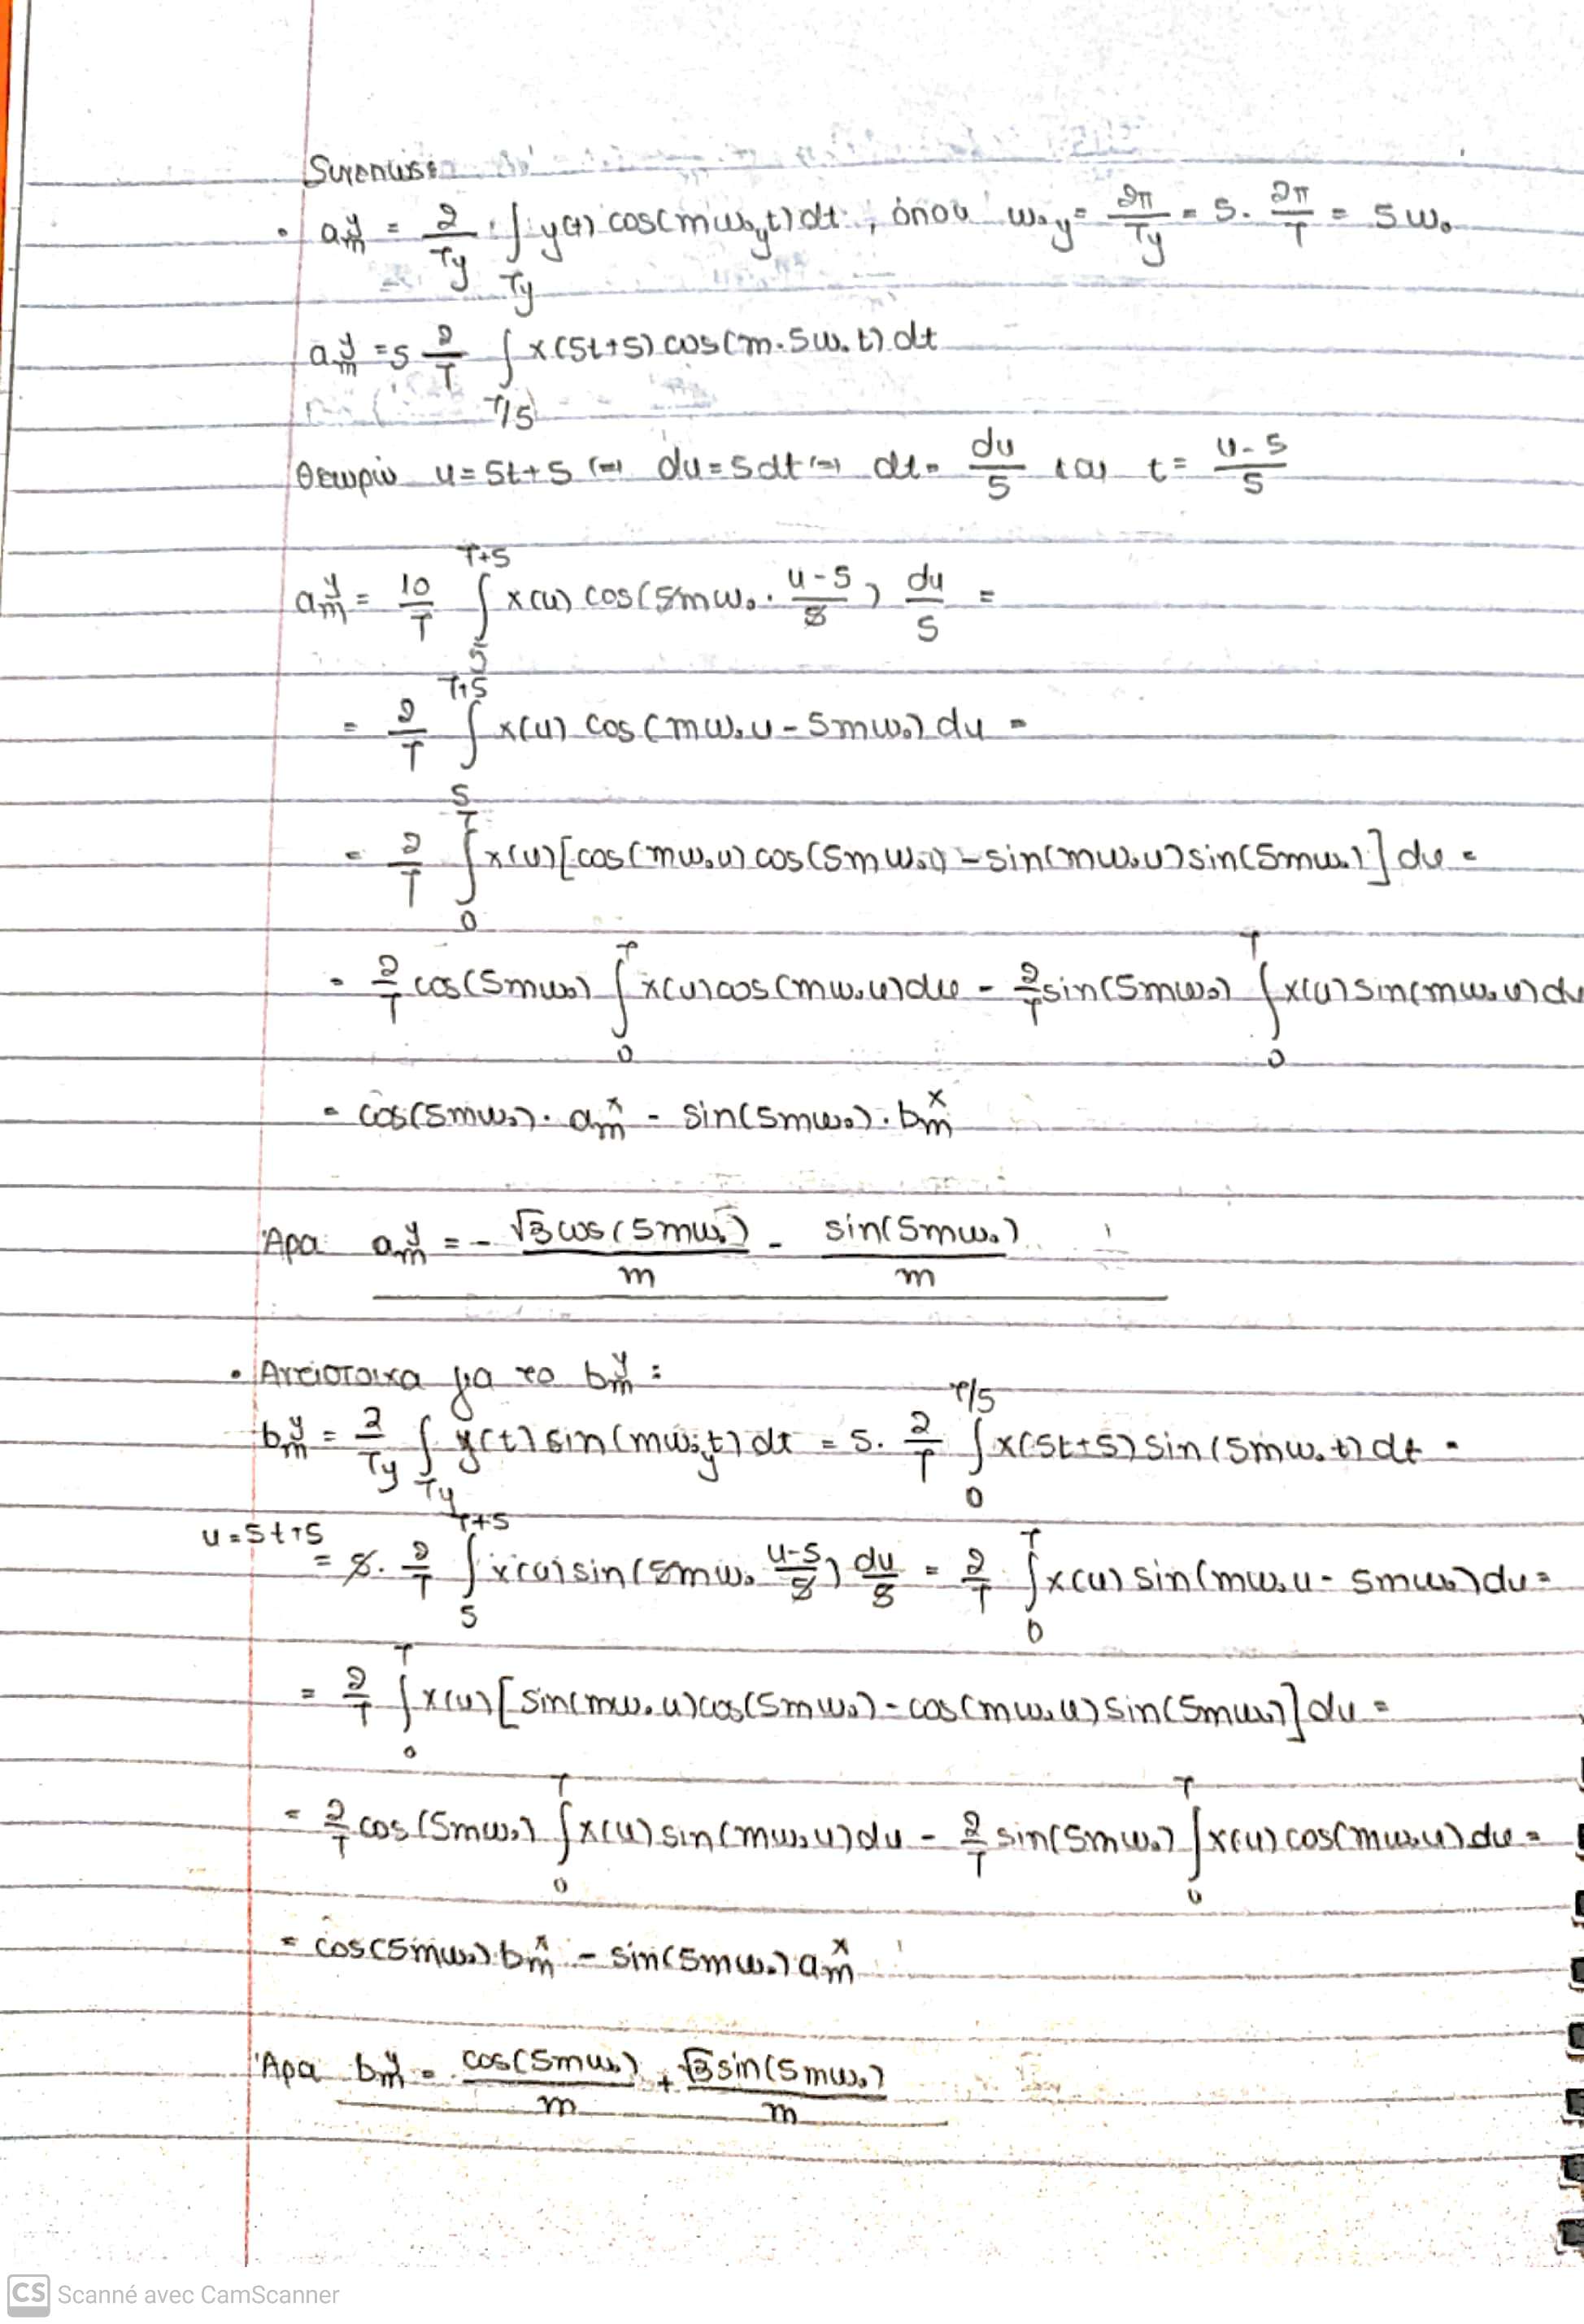 Συνεπώς:
• a_m^y = 2/Ty ∫_Ty y(t) cos(mω₀yt)dt , όπου ω₀y = 2π/Ty = 5 · 2π/T = 5ω₀
a_m^y = 5 2/T ∫_T/5 x(5t+5) cos(m·5ω₀t)dt
Θεωρώ u = 5t+5 (=) du = 5dt (=) dt = du/5 και t = u-5/5
a_m^y = 10/T ∫_5^T+5 x(u) cos(5mω₀ · u-5/5) du/5 =
= 2/T ∫_5^T+5 x(u) cos(mω₀u - 5mω₀) du =
= 2/T ∫_0^T x(u)[cos(mω₀u) cos(5mω₀) - sin(mω₀u) sin(5mω₀)] du =
= 2/T cos(5mω₀) ∫_0^T x(u) cos(mω₀u)du - 2/T sin(5mω₀) ∫_0^T x(u) sin(mω₀u)du
= cos(5mω₀) · a_m^x - sin(5mω₀) · b_m^x
Άρα a_m^y = - √3 cos(5mω₀)/m - sin(5mω₀)/m
• Αντίστοιχα για το b_m^y :
b_m^y = 2/Ty ∫_Ty y(t) sin(mω₀yt) dt = 5 · 2/T ∫_0^T/5 x(5t+5) sin(5mω₀t) dt =
u=5t+5 = 5 · 2/T ∫_5^T+5 x(u) sin(5mω₀ u-5/5) du/5 = 2/T ∫_0^T x(u) sin(mω₀u - 5mω₀)du =
= 2/T ∫_0^T x(u)[sin(mω₀u)cos(5mω₀) - cos(mω₀u) sin(5mω₀)] du =
= 2/T cos(5mω₀) ∫_0^T x(u) sin(mω₀u)du - 2/T sin(5mω₀) ∫_0^T x(u) cos(mω₀u)du =
= cos(5mω₀) b_m^x - sin(5mω₀) a_m^x
Άρα b_m^y = cos(5mω₀)/m + √3 sin(5mω₀)/m
CS Scanné avec CamScanner